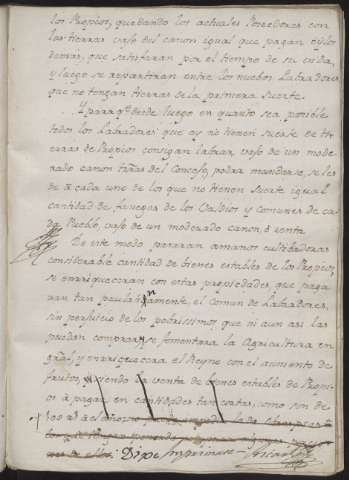 los Propios, quedando los actuales Poseedores con
las tierras vajo del canon igual que pagan
demas, que satisfaran por el tiempo de su vida,
y luego se repartiran entre los nuebos Labradores
que no tengan tierras de la primera suerte.
Y para qe desde luego en quanto sea posible
todos los Labradores que oy no tienen suerte de tie-
rras de Propios consigan labrar, vajo de un mode-
rado canon tierras del Concejo, podra mandarse, se les
de à cada uno de los que no tienen suerte igual
cantidad de fanegas de los Valdios y comunes de ca-
da Pueblo, vajo de un moderado canon, ò renta.
De este modo pasaran amanos cultibadoras
considerable cantidad de bienes estables de los Propios,
se enrriqueceran con estas propiedades, que paga-
ran tan paulatinamente, el comun de Labradores,
sin perjuicio de los pobrissimos, que ni aun asi las
puedan comprar; se fomentarà la Agricultura en
gral, y enrriquecera el Reyno con el aumento de
frutos, siendo la venta de bienes estables de Propi-
os à pagar en cantidades tan cortas, como son de